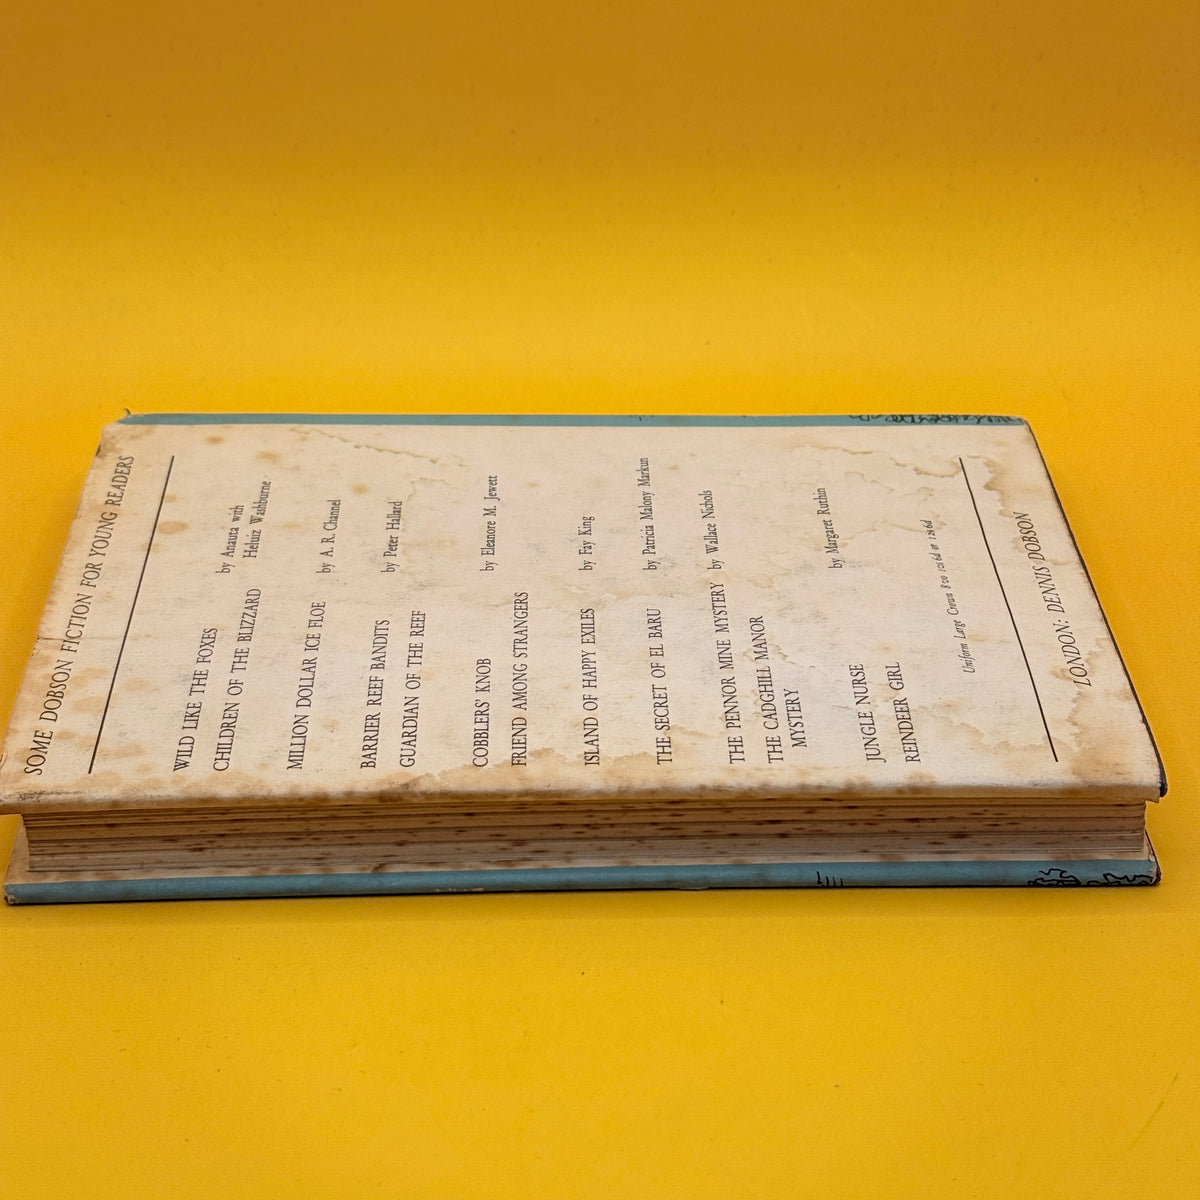 SOME DOBSON FICTION FOR YOUNG READERS
WILD LIKE THE FOXES by Anauta with
CHILDREN OF THE BLIZZARD Heluiz Washburne
MILLION DOLLAR ICE FLOE by A. R. Channel
BARRIER REEF BANDITS by Peter Hallard
GUARDIAN OF THE REEF
COBBLERS' KNOB by Eleanore M. Jewett
FRIEND AMONG STRANGERS
ISLAND OF HAPPY EXILES by Fay King
THE SECRET OF EL BARU by Patricia Malony Markun
THE PENNOR MINE MYSTERY by Wallace Nichols
THE CADGHILL MANOR
MYSTERY
JUNGLE NURSE by Margaret Ruthin
REINDEER GIRL
Uniform Large Crown 8vo 10s 6d or 12s 6d
LONDON: DENNIS DOBSON